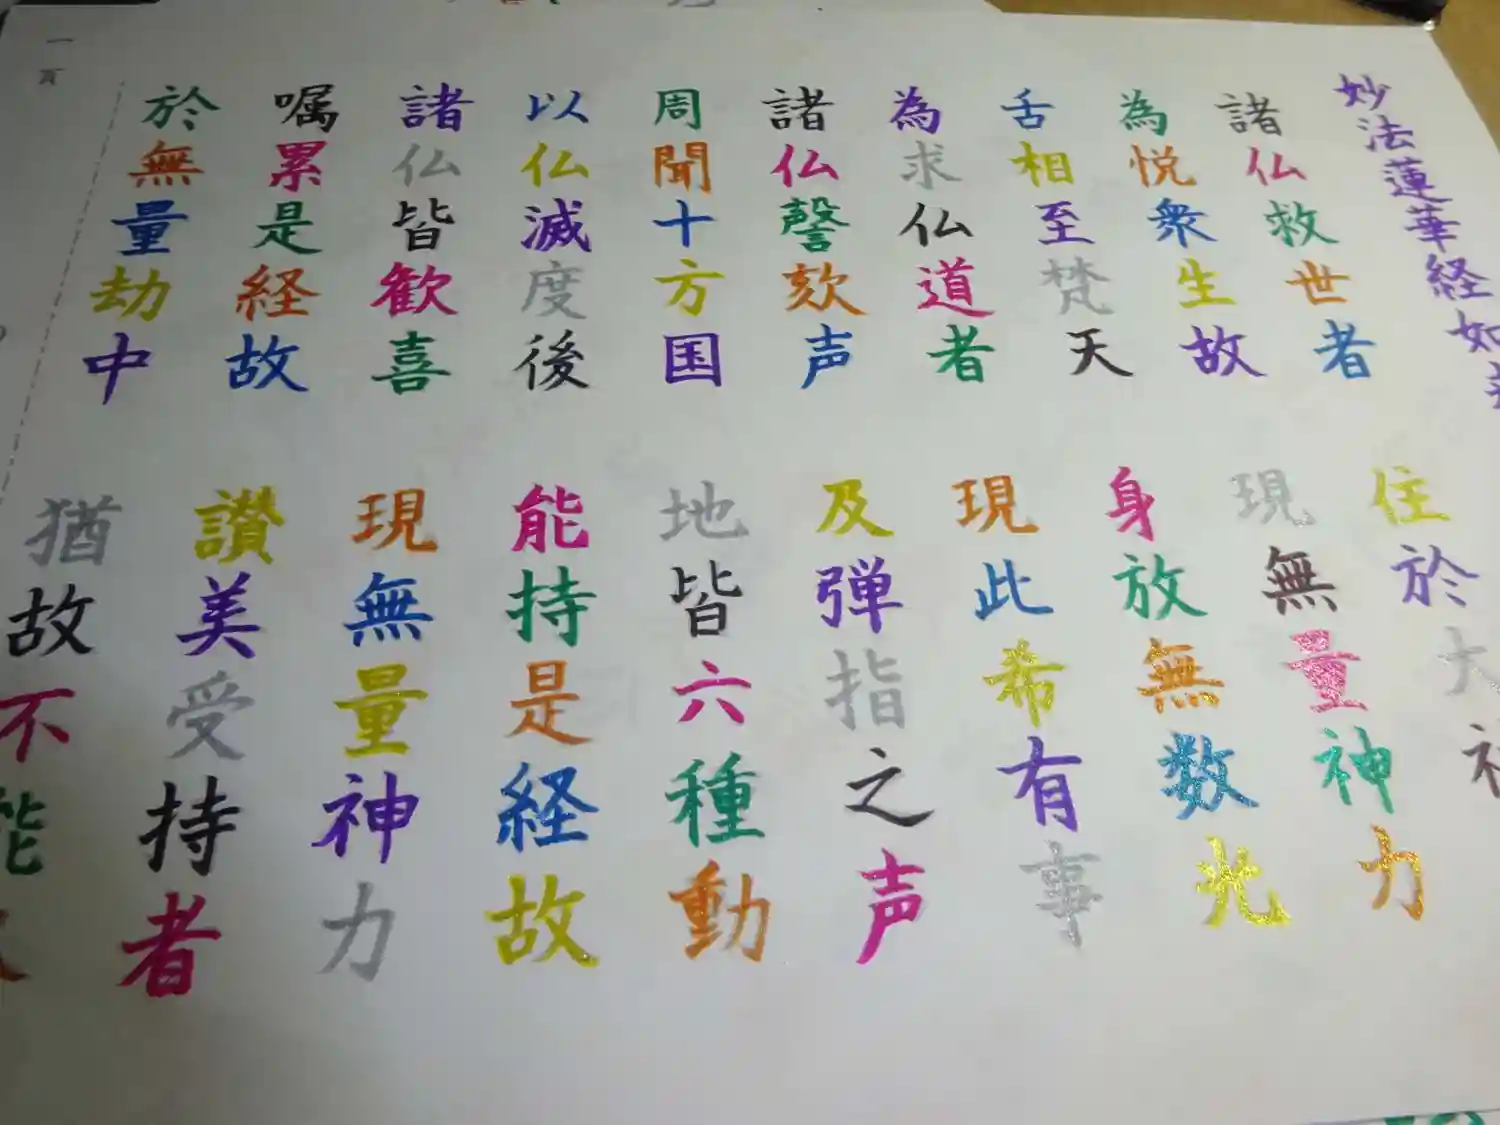 妙法蓮華経如
諸仏救世者
住於大神
為悦衆生故
現無量神力
舌相至梵天
身放無数光
為求仏道者
現此希有事
諸仏謦欬声
及弾指之声
周聞十方国
地皆六種動
以仏滅度後
能持是経故
諸仏皆歓喜
現無量神力
嘱累是経故
讃美受持者
於無量劫中
猶故不能
一頁